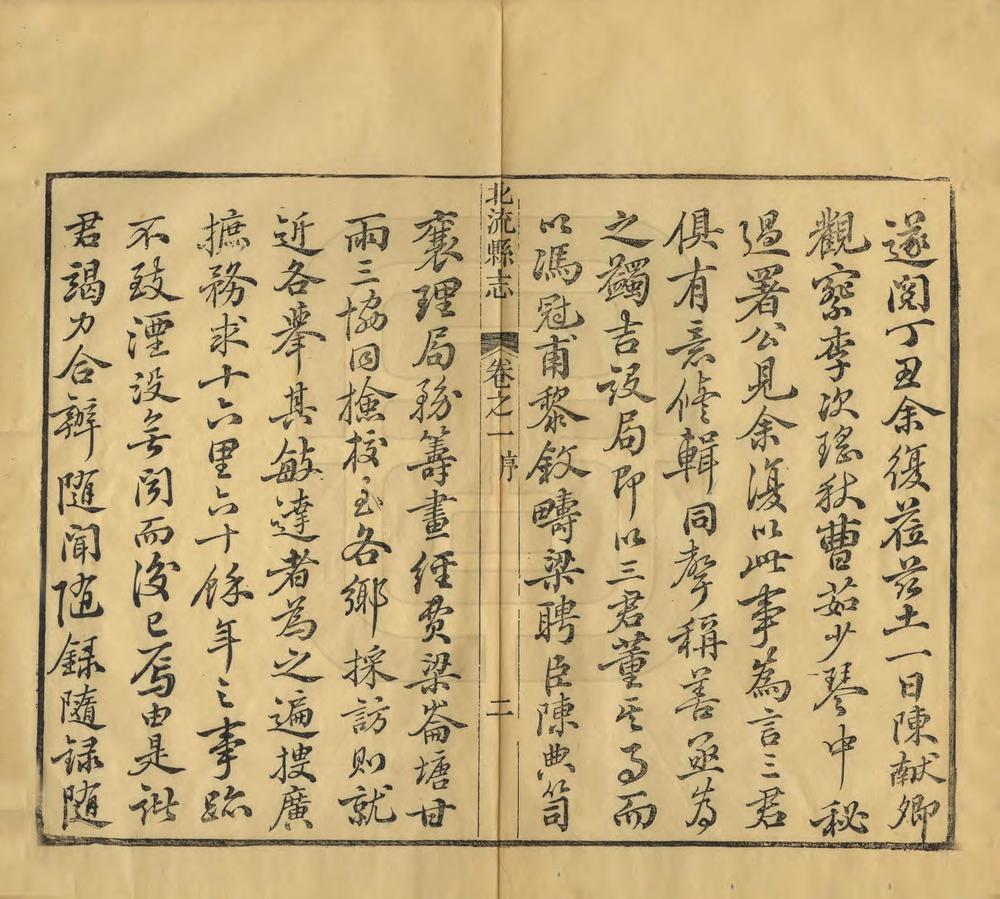 遂閱丁丑余復蒞茲土一日陳献卿
觀察李次瑤秋曹茹少琴中秘
過署公見余復以此事為言三君
俱有意修輯同聲稱善亟為
之蠲吉設局即以三君董其事而
以馮冠甫黎敘疇梁聘臣陳典笥
北流縣志 卷之一 序 二
襄理局務籌畫經費梁崙塘甘
雨三協同檢校至各鄉採訪則就
近各舉其敏達者為之遍搜廣
摭務求十六里六十餘年之事跡
不致湮没無闻而後已焉由是諸
君竭力合辦随聞随録随録随